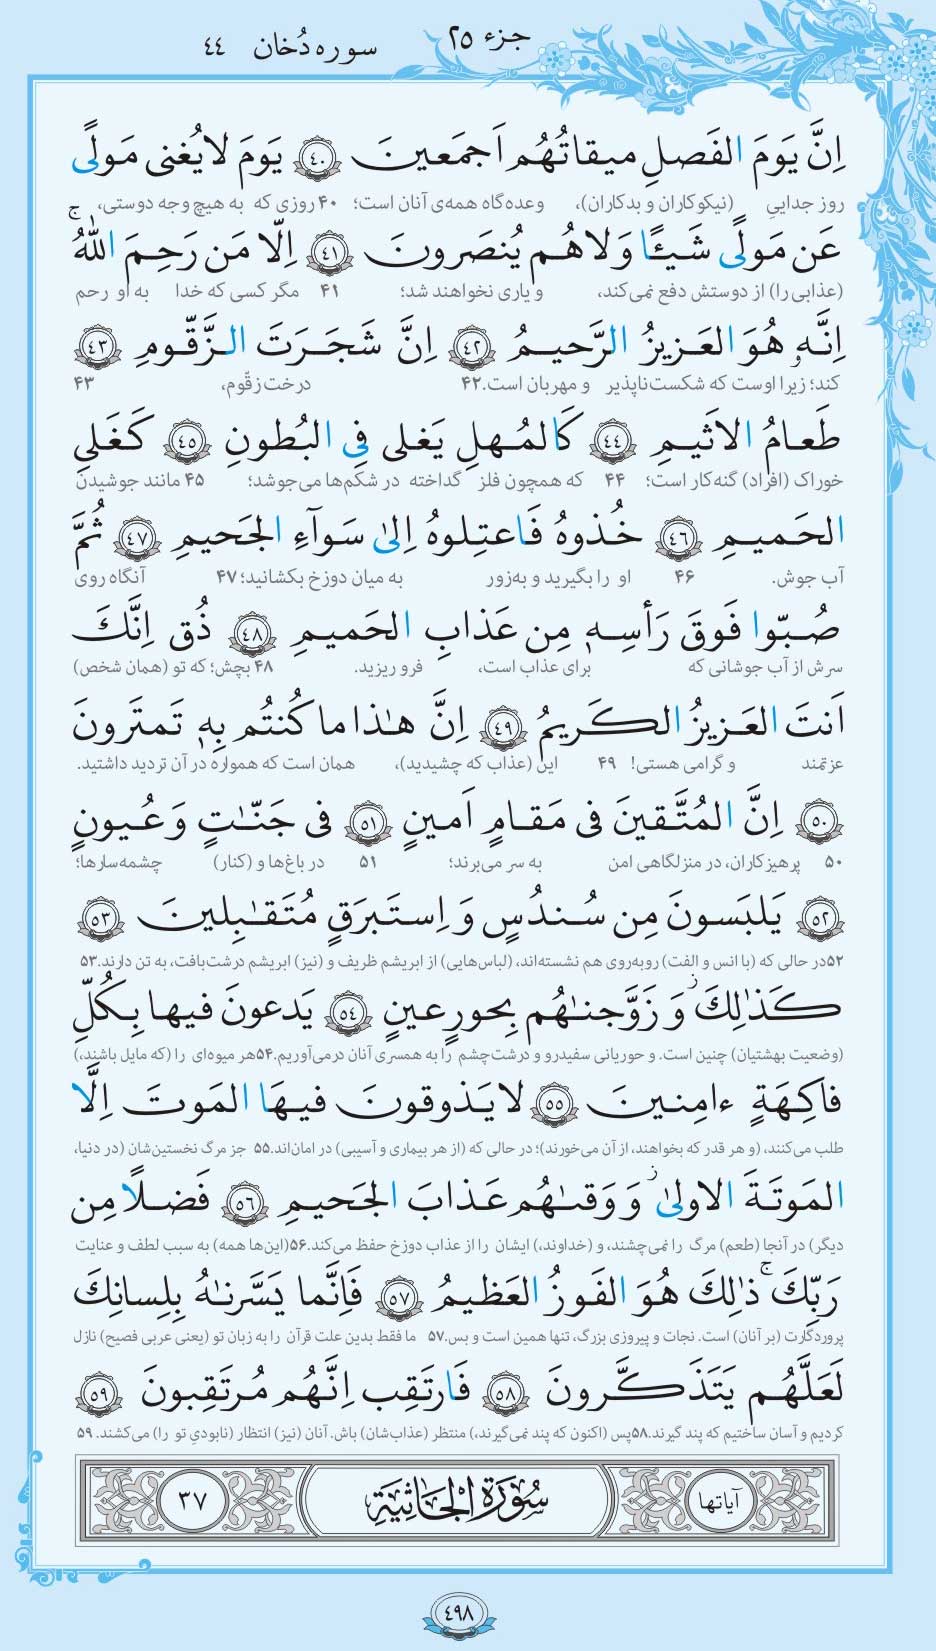 جزء ۲۵
سوره دُخان ۴۴
اِنَّ يَوۡمَ الفَصلِ ميقاتُهُم اَجمَعينَ ﴿٤٠﴾ يَومَ لايُغنى مَولًى
روز جدایی (نیکوکاران و بدکاران)، وعده‌گاه همه‌ی آنان است؛ ۴۰ روزی که به هیچ وجه دوستی،
عَن مَولًى شَيـًٔا وَلاهُم يُنصَرونَ ﴿٤١﴾ اِلّا مَن رَحِمَ اللهُ ۚ
(عذابی را) از دوستش دفع نمی‌کند، و یاری نخواهند شد؛ ۴۱ مگر کسی که خدا به او رحم
اِنَّهٗ هُوَ العَزيزُ الرَّحيمُ ﴿٤٢﴾ اِنَّ شَجَرَتَ الزَّقّومِ ﴿٤٣﴾
کند؛ زیرا اوست که شکست‌ناپذیر و مهربان است.۴۲ درخت زقّوم، ۴۳
طَعامُ الاَثيمِ ﴿٤٤﴾ كَالمُهلِ يَغلى فِى البُطونِ ﴿٤٥﴾ كَغَلىِ
خوراک (افراد) گنه‌کار است؛ ۴۴ که همچون فلز گداخته در شکم‌ها می‌جوشد؛ ۴۵ مانند جوشیدن
الحَميمِ ﴿٤٦﴾ خُذوهُ فَاعتِلوهُ اِلىٰ سَوآءِ الجَحيمِ ﴿٤٧﴾ ثُمَّ
آب جوش. ۴۶ او را بگیرید و به‌زور به میان دوزخ بکشانید؛ ۴۷ آنگاه روی
صُبّوا فَوقَ رَأسِهٖ مِن عَذابِ الحَميمِ ﴿٤٨﴾ ذُق اِنَّكَ
سرش از آب جوشانی که برای عذاب است، فرو ریزید. ۴۸ بچش؛ که تو (همان شخص)
اَنتَ العَزيزُ الكَريمُ ﴿٤٩﴾ اِنَّ هٰذا ما كُنتُم بِهٖ تَمتَرونَ
عزتمند و گرامی هستی! ۴۹ این (عذاب که چشیدید)، همان است که همواره در آن تردید داشتید.
﴿٥٠﴾ اِنَّ المُتَّقينَ فى مَقامٍ اَمينٍ ﴿٥١﴾ فى جَنّٰتٍ وَعُيونٍ
۵۰ پرهیزکاران، در منزلگاهی امن به سر می‌برند؛ ۵۱ در باغ‌ها و (کنار) چشمه‌سارها؛
﴿٥٢﴾ يَلبَسونَ مِن سُندُسٍ وَاِستَبرَقٍ مُتَقٰبِلينَ ﴿٥٣﴾
۵۲در حالی که (با انس و الفت) روبه‌روی هم نشسته‌اند، (لباس‌هایی) از ابریشم ظریف و (نیز) ابریشم درشت‌بافت، به تن دارند.۵۳
كَذٰلِكَ ز وَزَوَّجنٰهُم بِحورٍ عينٍ ﴿٥٤﴾ يَدعونَ فيها بِكُلِّ
(وضعیت بهشتیان) چنین است. و حوریانی سفیدرو و درشت‌چشم را به همسری آنان درمی‌آوریم.۵۴هر میوه‌ای را (که مایل باشند،)
فاكِهَةٍ ءامِنينَ ﴿٥٥﴾ لايَذوقونَ فيهَا المَوتَ اِلَّا
طلب می‌کنند، (و هر قدر که بخواهند، از آن می‌خورند)؛ در حالی که (از هر بیماری و آسیبی) در امان‌اند.۵۵ جز مرگ نخستین‌شان (در دنیا،
المَوتَةَ الاولىٰ ز وَوَقىٰهُم عَذابَ الجَحيمِ ﴿٥٦﴾ فَضلًا مِن
دیگر) در آنجا (طعم) مرگ را نمی‌چشند، و (خداوند،) ایشان را از عذاب دوزخ حفظ می‌کند.۵۶(این‌ها همه) به سبب لطف و عنایت
رَبِّكَ ۚ ذٰلِكَ هُوَ الفَوزُ العَظيمُ ﴿٥٧﴾ فَاِنَّما يَسَّرنٰهُ بِلِسانِكَ
پروردگارت (بر آنان) است. نجات و پیروزی بزرگ، تنها همین است و بس.۵۷ ما فقط بدین علت قرآن را به زبان تو (یعنی عربی فصیح) نازل
لَعَلَّهُم يَتَذَكَّرونَ ﴿٥٨﴾ فَارتَقِب اِنَّهُم مُرتَقِبونَ ﴿٥٩﴾
کردیم و آسان ساختیم که پند گیرند.۵۸پس (اکنون که پند نمی‌گیرند،) منتظر (عذاب‌شان) باش. آنان (نیز) انتظار (نابودیِ تو را) می‌کشند. ۵۹
آیاتها سُورَةُ الجَاثِيَةِ ٣٧
٤٩٨